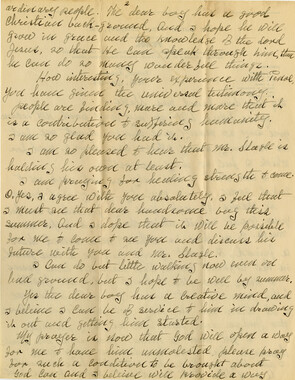 2
ordinary people. The dear boy has a good
Christian back-ground, and I hope he will
grow in grace and the knowledge of the Lord
Jesus, so that He can speak through him, then
he can do so many wonderful things.
How interesting, your experience with
You have joined the universal testimony.
people are finding, more and more that it
is a contribution to suffering humanity.
I am so glad you had it.
I am so pleased to hear that Mr. Slagle is
holding his own at least.
I am praying for healing strength to come
O, yes, I agree with you absolutely, I feel that
I must see that dear handsome boy this
summer, and I hope that it will be possible
for me to come to see you and discuss his
future with you and Mr. Slagle.
I can do but little walking now even on
level ground, but I hope to be well by summer.
Yes the dear boy has a creative mind, and
I believe I can be of service to him in drawing
it out and getting him started.
My prayer is now that God will open a way
for me to have him unmolested, please pray
for such a condition to be brought about
God can and I believe will provide a way.